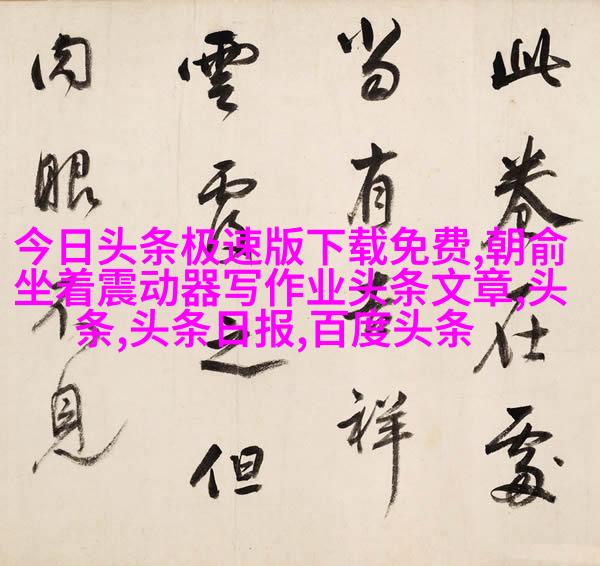 此卷在處
當有吉祥
雲覆之但
肉眼不見
今日头条极速版下载免费,朝俞
坐着震动器写作业头条文章,头
条,头条日报,百度头条